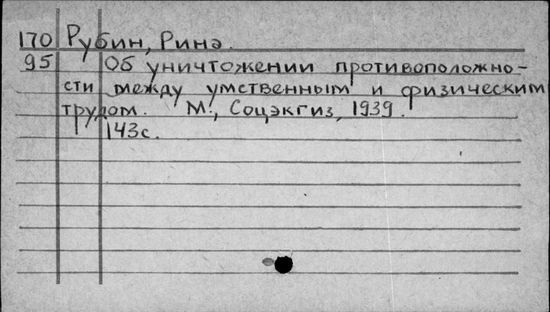 170 Рубин,Ринэ.
95 Об уничтожении противоположно-
сти между умственным и физическим
трудом. М., Соцэкгиз, 1939.
143с.